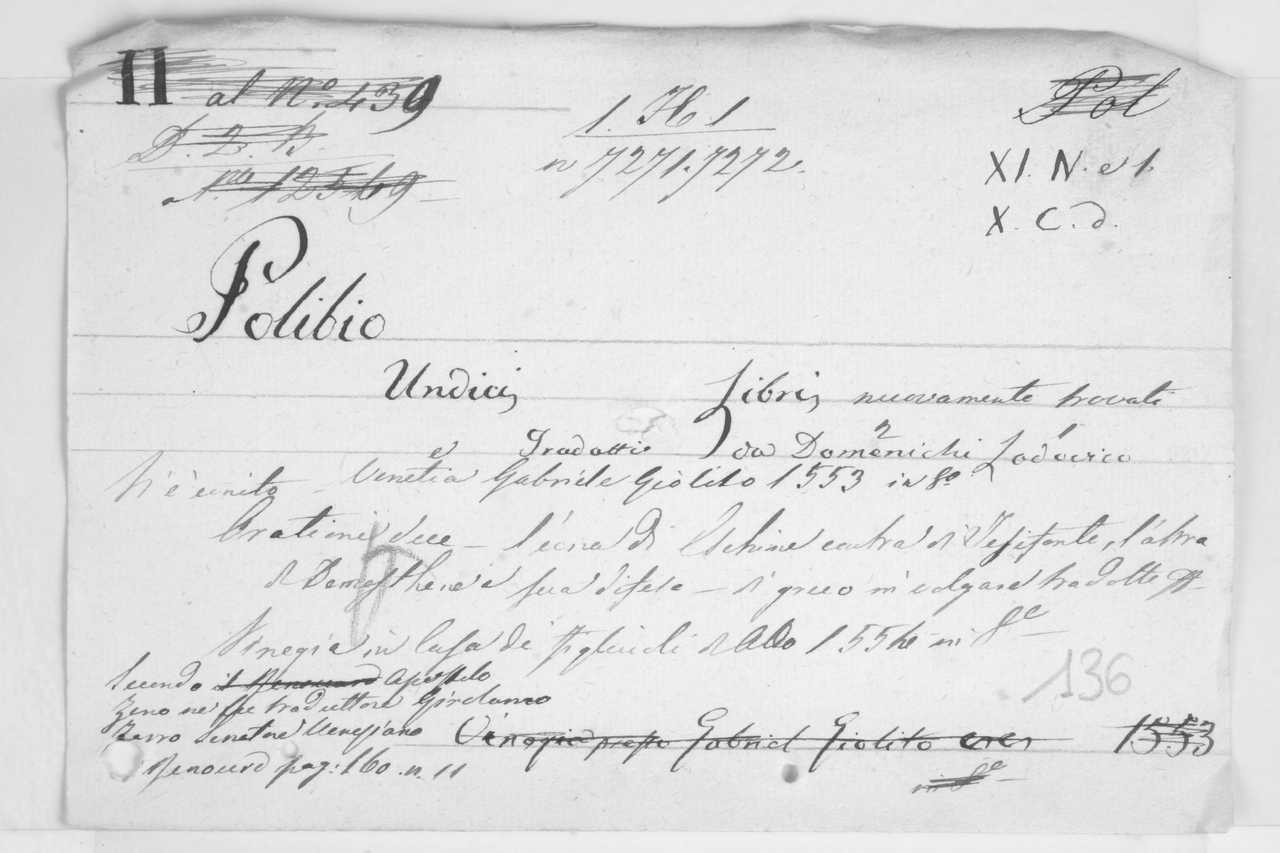 II al No. 439
Pol
1. H. 1
D. 2. B.
n 7271.7272.
XI. N. e 1.
no 12569
X. C. d.
Polibio
Undici Libri nuovamente trovati
e Tradotti da Domenichi Lodovico
Si è unito Venetia Gabriele Giolito 1553 in 8o
Orationi due - l'una di Eschine contra di Tesifonte, l'altra
di Demosthene a sua difesa - di greco in volgare tradotte
Vinegia in Casa de' Figliuoli di Aldo 1554 in 8o
136
Secondo il Renouard Apostolo
Zeno ne fu traduttore Girolamo
Ferro Senatore Veneziano
Vinegia presso Gabriel Giolito 1553
Renouard pag. 160. n. 11
in 8o